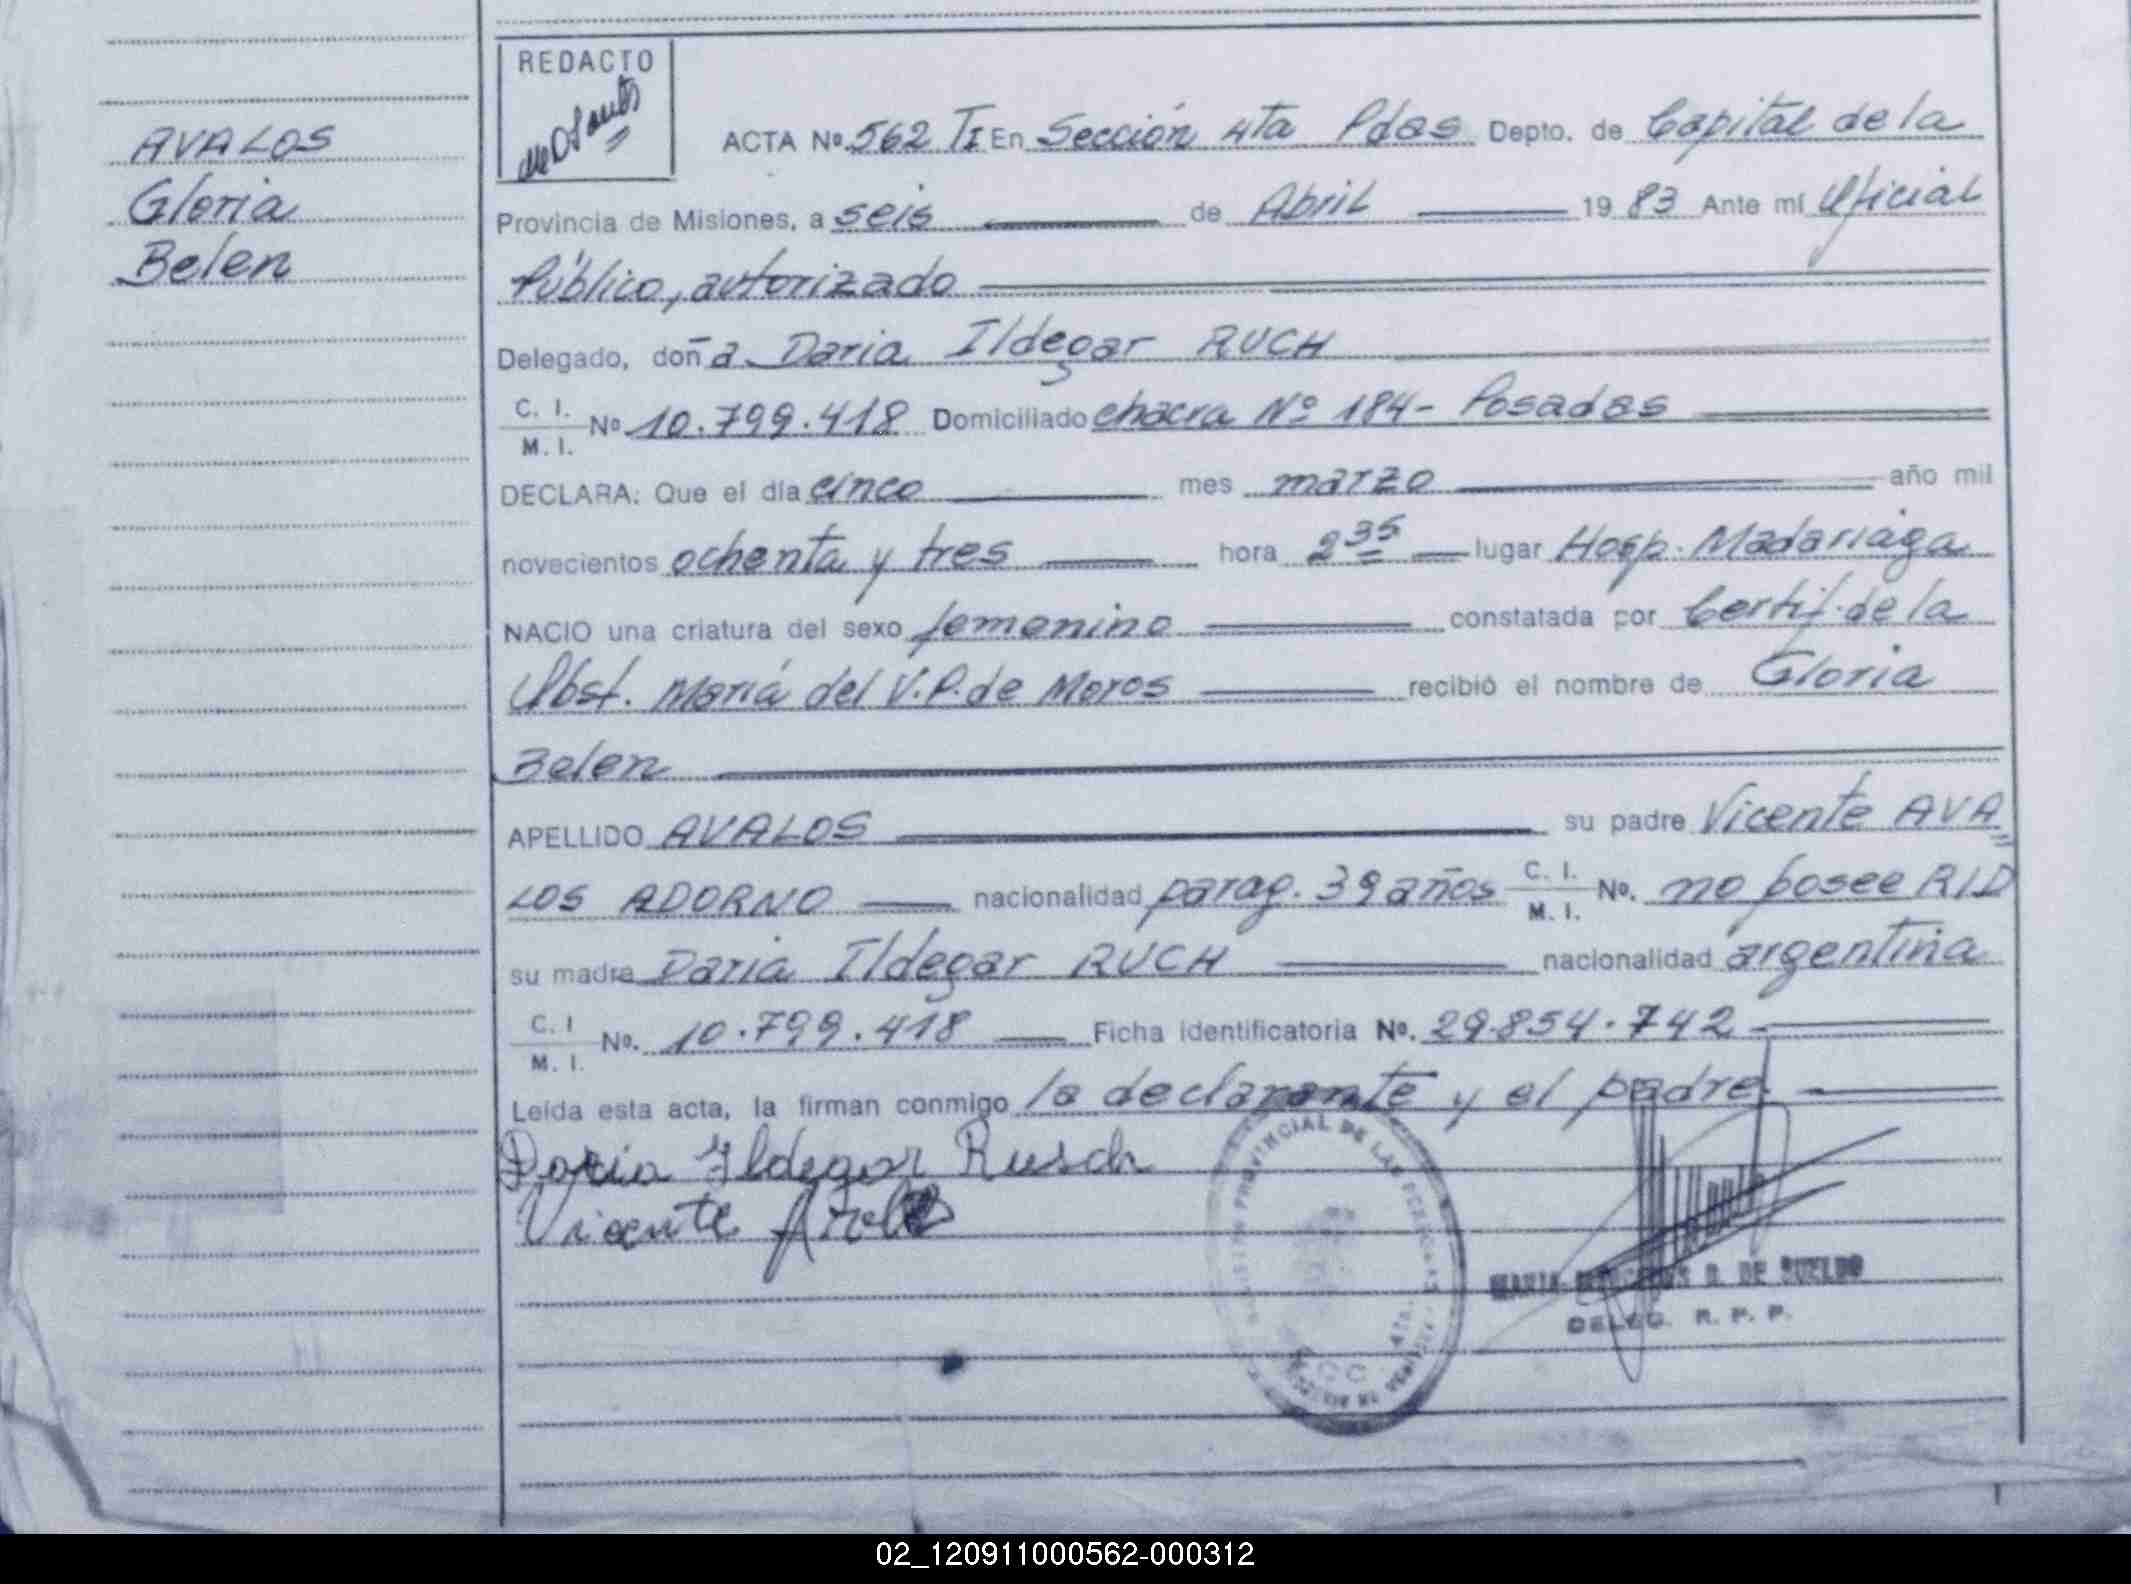 AVALOS
Gloria
Belen
REDACTO
ACTA Nº 562 TI En Sección 4ta Pdas Depto. de Capital de la
Provincia de Misiones, a seis de Abril 1983 Ante mí Oficial
Público, autorizado
Delegado, doña Daria Ildegar RUCH
C. I.
M. I. Nº 10.799.418 Domiciliado chacra Nº 184- Posadas
DECLARA: Que el día cinco mes marzo año mil
novecientos ochenta y tres hora 2 35 lugar Hosp. Madariaga
NACIO una criatura del sexo femenino constatada por Certif. de la
Obst. María del V.P. de Moros recibió el nombre de Gloria
Belen
APELLIDO AVALOS su padre Vicente AVA
LOS ADORNO nacionalidad parag. 39 años C. I. M. I. Nº. no posee RID
su madre Daria Ildegar RUCH nacionalidad argentina
C. I
M. I. Nº. 10.799.418 Ficha identificatoria Nº. 29.854.742
Leída esta acta, la firman conmigo la declarante y el padre.
Daria Ildegar Rusch
Vicente
PROVINCIAL DE LAS PERSONAS
D. DE SUELDO
DELEG. R. P. P.
02_120911000562-000312